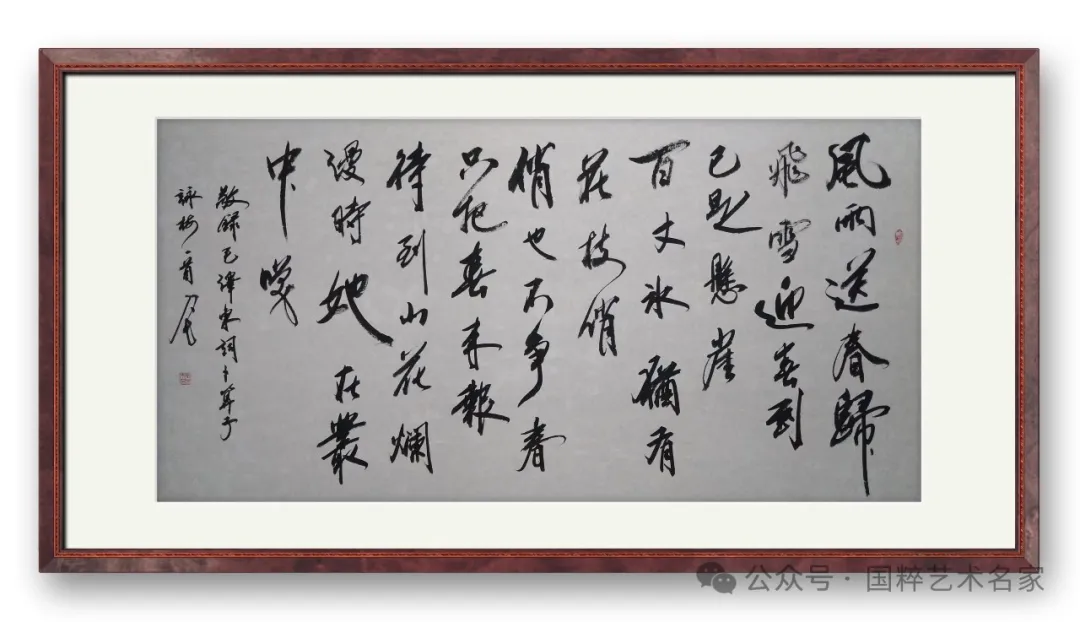 風雨送春歸
飛雪迎春到
已是懸崖
百丈冰猶有
花枝俏
俏也不爭春
只把春來報
待到山花爛
漫時她在叢
中咲
敬錄毛澤東詞卜算子
詠梅一首
公众号 · 国粹艺术名家